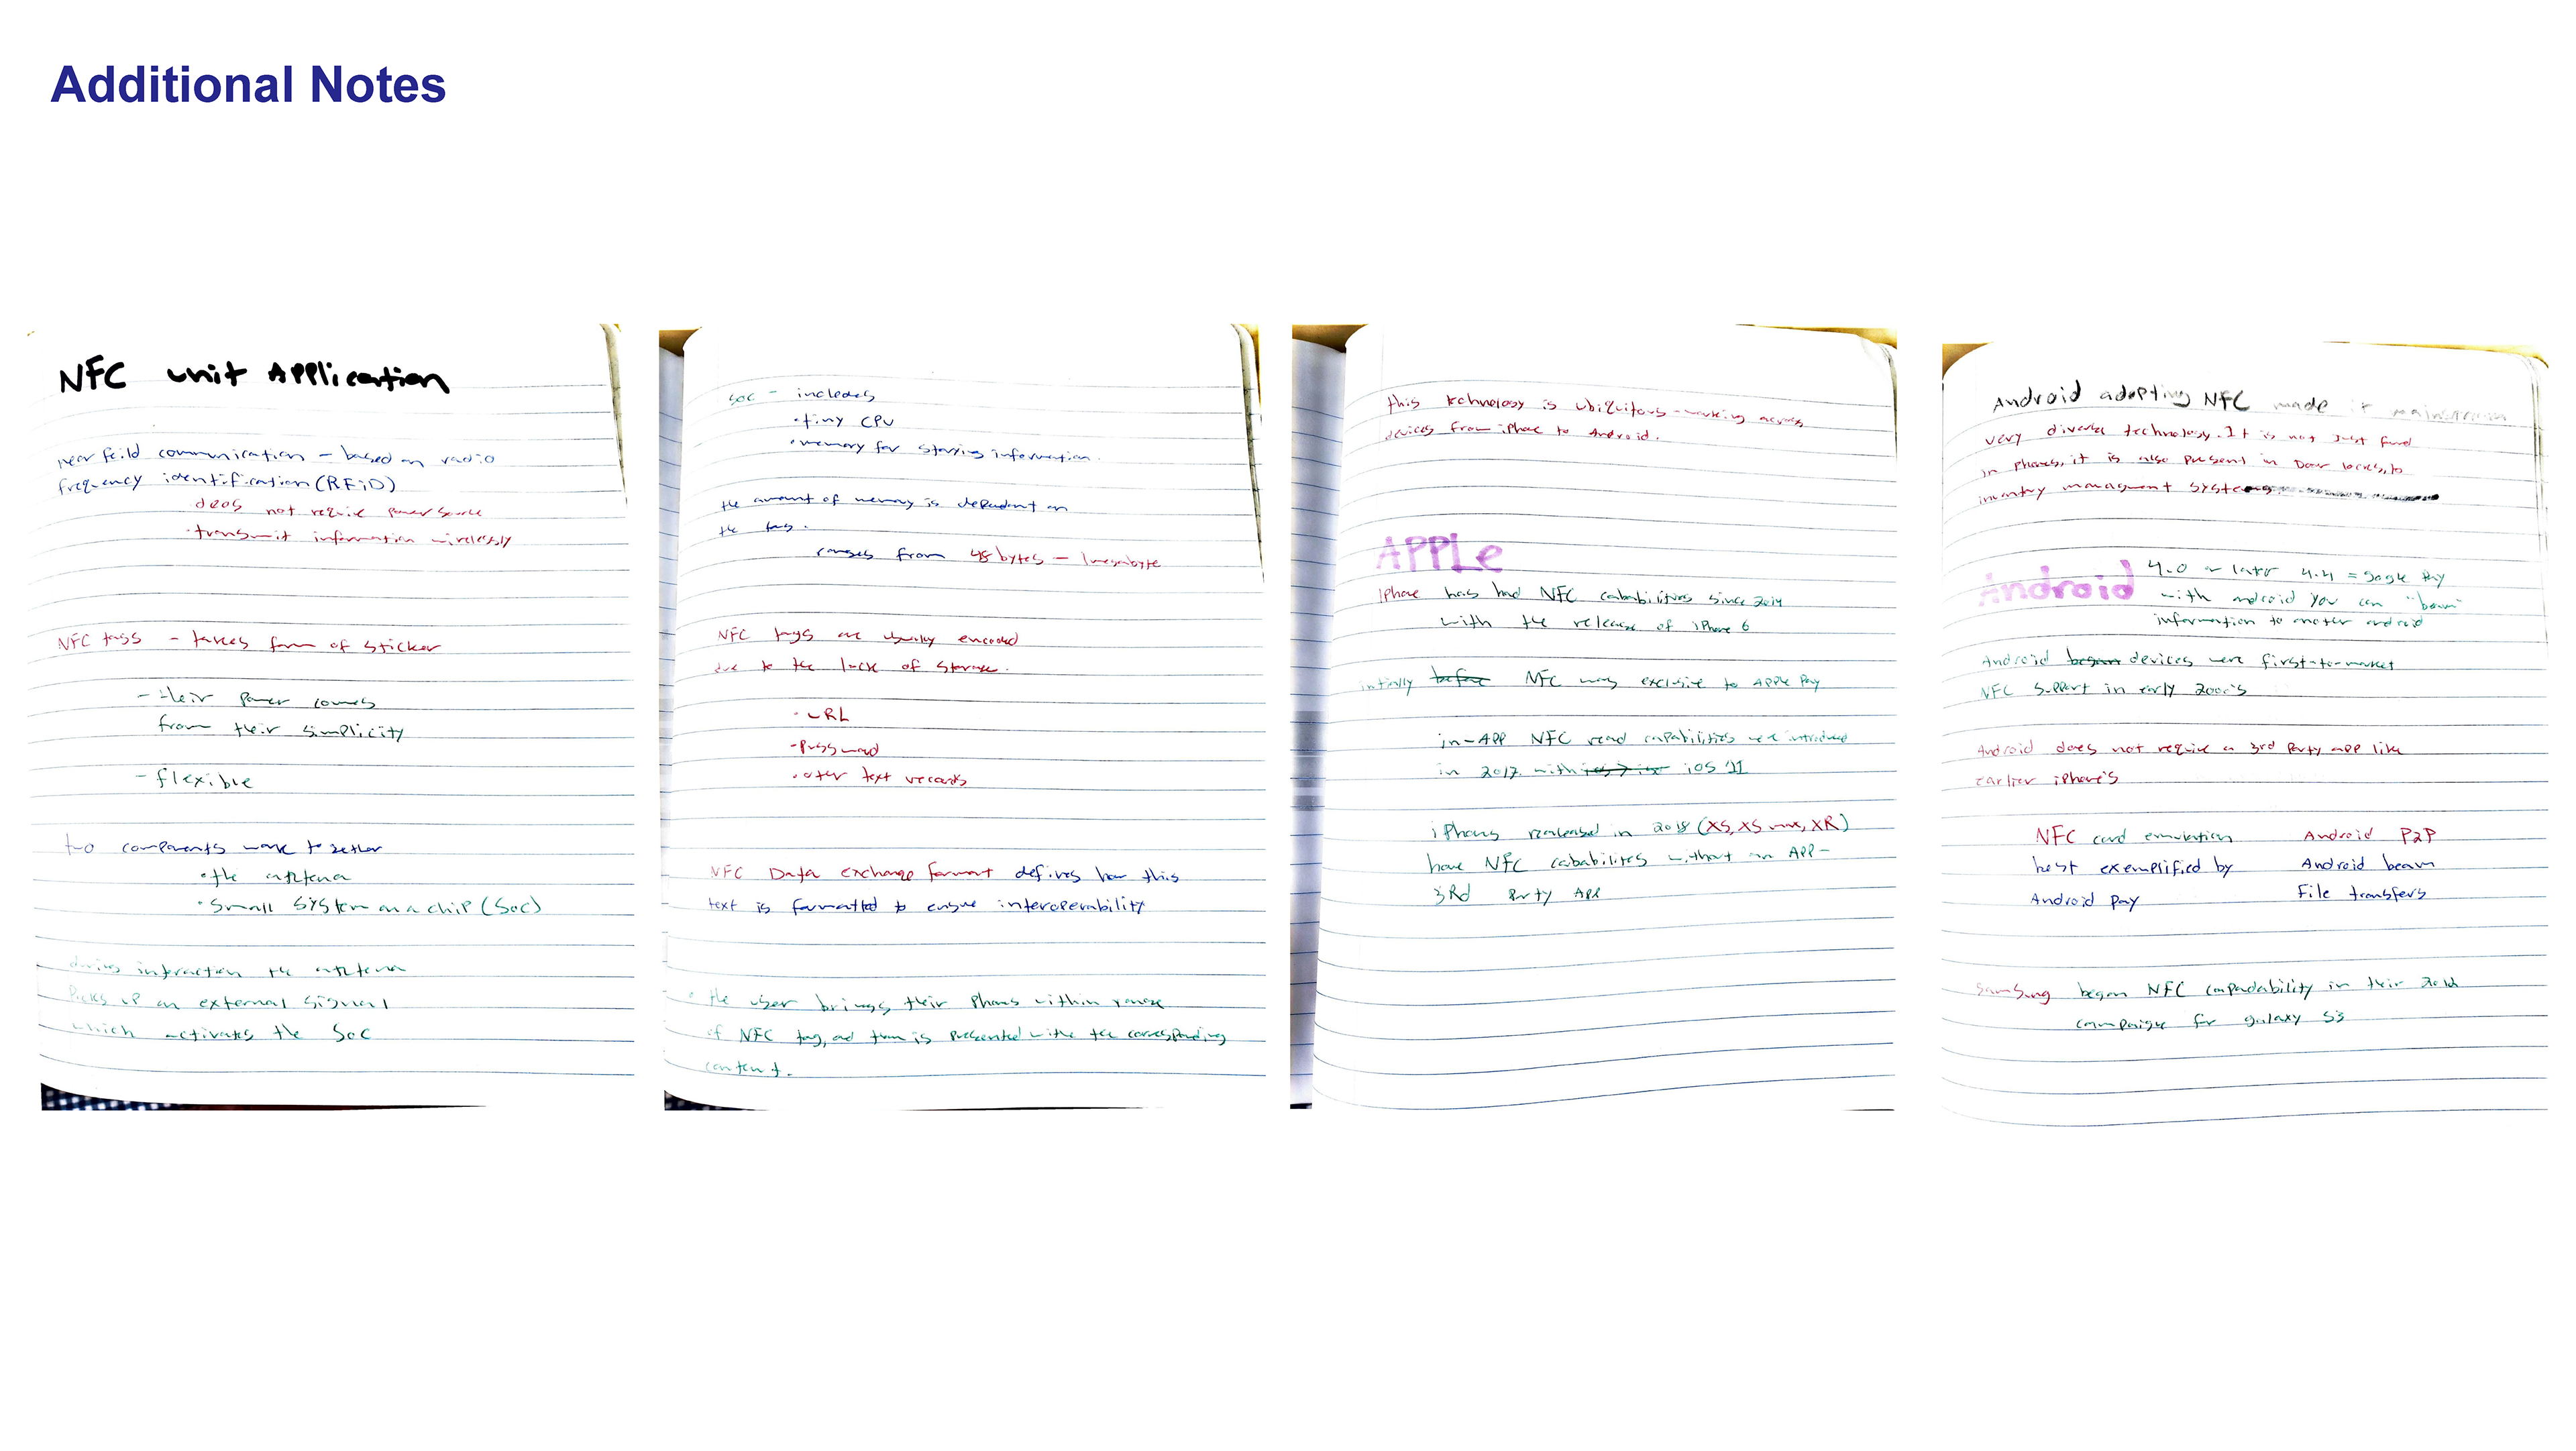 Additional Notes
NFC unit Application
near feild communication - based on radio
frequency identification (RFiD)
deos not require power source
·transmit information wirelessly
NFC tags - takes form of sticker
- their power comes
from their simplicity
- flexible
two components work together
·the antena
·Small System on a chip (Soc)
during interaction the antena
Picks up an external signal
which activates the Soc
soc - includes
·tiny CPU
·memory for storing information.
the amount of memory is dependant on
the tag.
ranges from 48 bytes - 1 megabyte
NFC tags are usually encoded
due to the lack of storage.
·URL
·Password
·other text records
NFC Data exchange format defines how this
text is formatted to ensure interoperability
· the user brings their phone within range
of NFC tag, and is presented with the corresponding
content.
this technology is ubiquitous - working across
devices from iPhone to Android.
APPLe
iphone has had NFC cababilities since 2014
with the release of iPhone 6
intially before NFC was exclusive to APPle Pay
in-APP NFC read capabilities were introduced
in 2017 with iOS 11
iPhones realeased in 2018 (XS, XS max, XR)
have NFC cababilites without an APP-
3Rd Party APP
Android adopting NFC made it mainstream
very diverse technology. It is not just found
in phones, it is also present in Door locks, to
inventry managment systems
Android 4.0 or later 4.4 = google Pay
with android you can "beam"
information to another android
Android began devices were first-to-market
NFC support in early 2000's
Android does not require a 3rd Party app like
earlier iPhone's
NFC card emulation
best exemplified by
Android pay
Android P2P
Android beam
File transfers
Samsung began NFC capadability in their 2012
campaign for galaxy S3